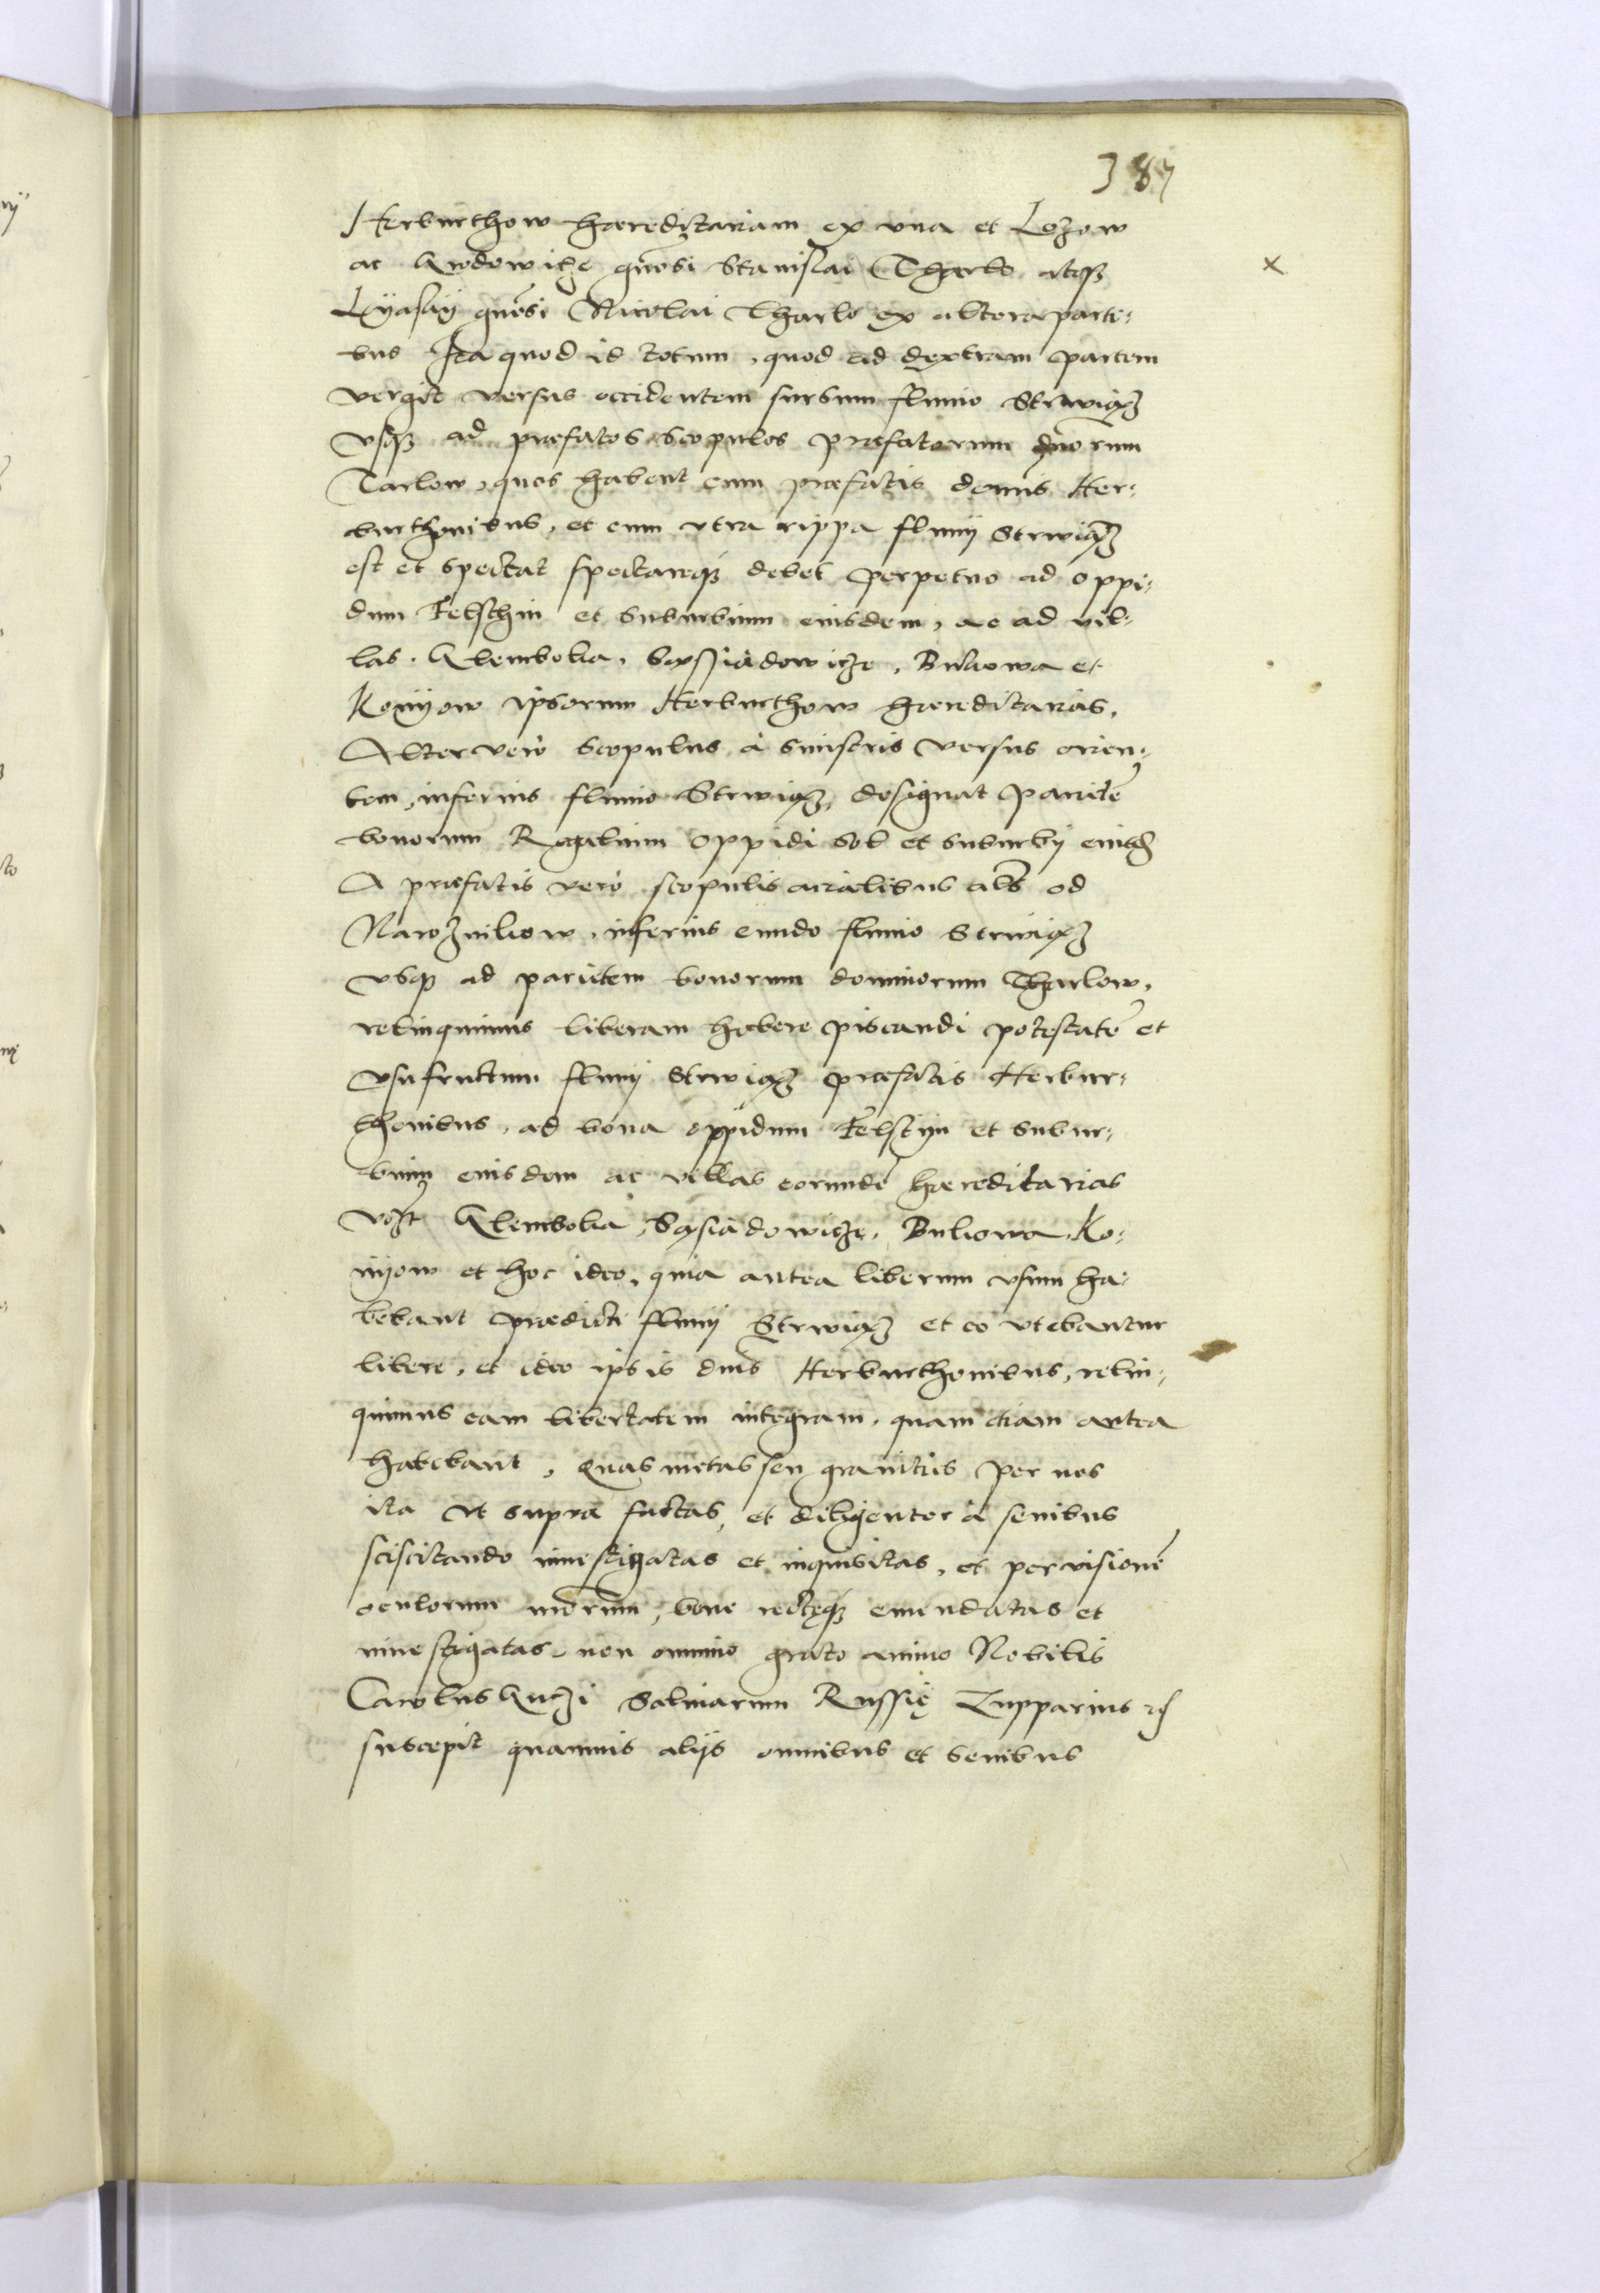 387
Herburthow haereditariam ex vna et Lozow
ac Godowicze gnosi Stanislai Tharlo atq3
Lyasky gnosi Nicolai Tharlo ex altera parti¬
bus Ita quod id totum, quod ad dextram partem
vergit versus occidentem sursum fluuio Strwiąż
vsq3 ad praefatos scopulos praefatorum dnorum
Tarlow, quos habent cum praefatis domis Her¬
burthonibus, et cum vtra rippa fluuij Strwiąż
est et spectat spectareq3 debet perpetuo ad oppi¬
dum Felschin et suburbium eiusdem, ac ad vil¬
las, Glemboka, Sąssiadowicze, Bukowa et
Konyow ipsorum Herburthow haereditarias.
Alter verò scopulus à sinistris versus orien¬
tem, inferius fluuio Strwiąż, designat parietē
bonorum Regalium oppidi Sol et suburbij eiusd
A praefatis verò scopulis acialibus als od
Narożnikow, inferius eundo fluuio Strwiąż
vsq3 ad parietem bonorum dominorum Tharlow,
relinquimus liberam habere piscandi potestatē et
vsufructum fluuij Strwiąż praefatis Herbur¬
thonibus, ad bona oppidum Felstyn et subur¬
bium eiusdem ac villas eorundē haereditarias
vozt Glemboka, Sąsiadowicze, Bukowa, Ko¬
nyow et hoc ideo, quia antea liberum vsum ha¬
bebant praedicti fluuij Strwiąż et eo vtebantur
libere, et ideo ipsis dnis Herburthonibus, relin¬
quimus eam libertatem integram, quam etiam antea
habebant, Quas metas seu granities per nos
ita vt supra factas, et diligenter à senibus
sciscitando inuestigatas et inquisitas, et per visionē
oculorum nrorum, bene recteq3 emendatas et
inuestigatas, non omnino grato animo Nobilis
Carolus Guczi Salinarum Russię Zupparius
suscepit quamuis alijs omnibus et senibus